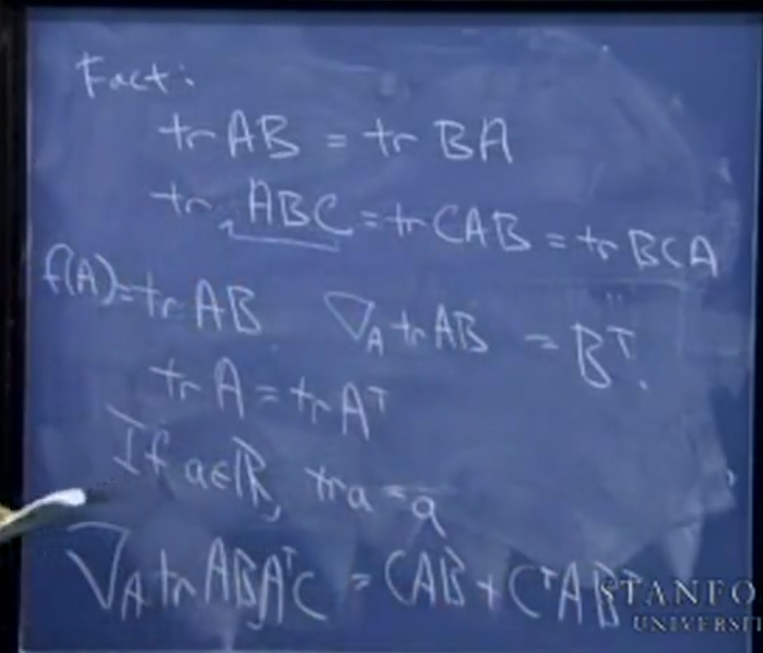 Fact:
tr AB = tr BA
tr ABC = tr CAB = tr BCA
f(A) = tr AB ∇_A tr AB = Bᵀ.
tr A = tr Aᵀ
If a∈ℝ, tr a = a
∇_A tr ABAᵀC = CAB + CᵀABᵀ
STANFO
UNIVERSIT